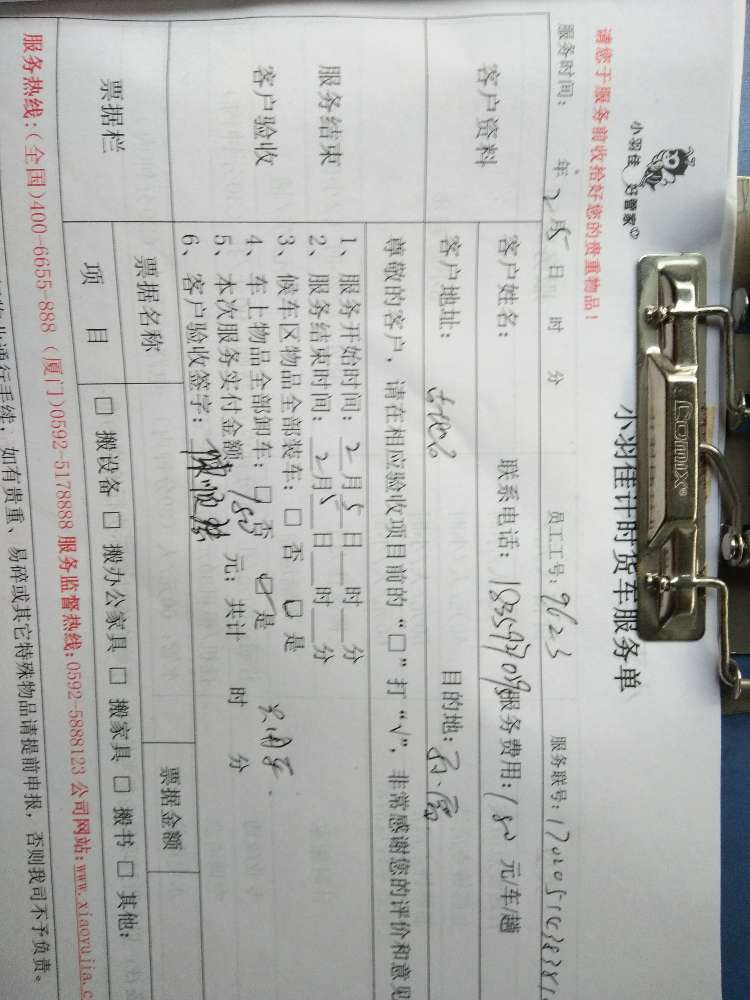 小羽佳 好管家
小羽佳计时货车服务单
请您于服务前收拾好您的贵重物品！
服务时间： 年 2月5日 时 分 员工工号：9623 服务联号：
客户资料
客户姓名： 联系电话： 服务费用：180 元/车/趟
客户地址： 目的地：
尊敬的客户，请在相应验收项目前的“□”打“√”，非常感谢您的评价和意见
服务结束
客户验收
1、服务开始时间：2月5日 时 分
2、服务结束时间：2月5日 时 分
3、候车区物品全部装车：□ 否 □ 是
4、车上物品全部卸车：□ 否 □ 是
5、本次服务实付金额 180 元；共计 时 分
6、客户验收签字：
票据栏
票据名称 票据金额
项 目 □ 搬设备 □ 搬办公家具 □ 搬家具 □ 搬书 □ 其他：
服务热线：(全国)400-6655-888 (厦门)0592-5178888 服务监督热线：0592-5888123 公司网站：www.xiaoyujia.c
通行手续；如有贵重、易碎或其它特殊物品请提前申报，否则我司不予负责。
Comix